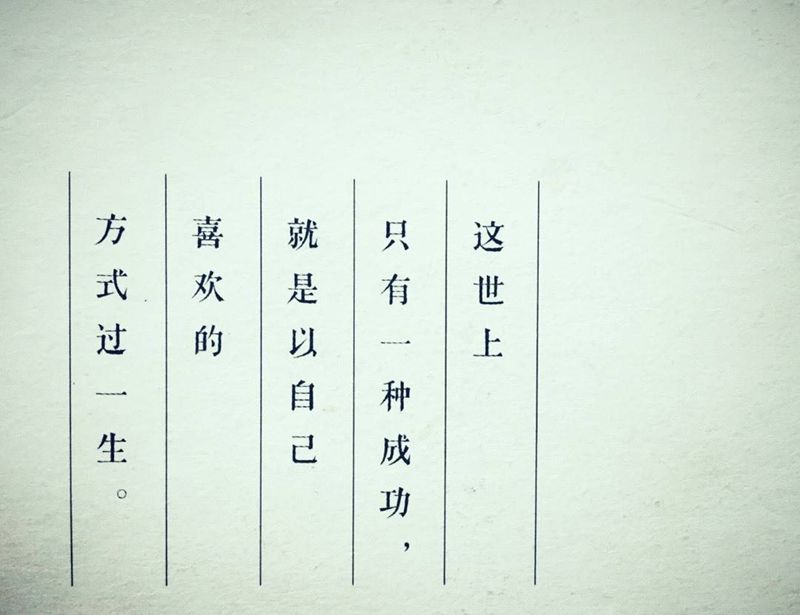 这世上
只有一种成功，
就是以自己
喜欢的
方式过一生。